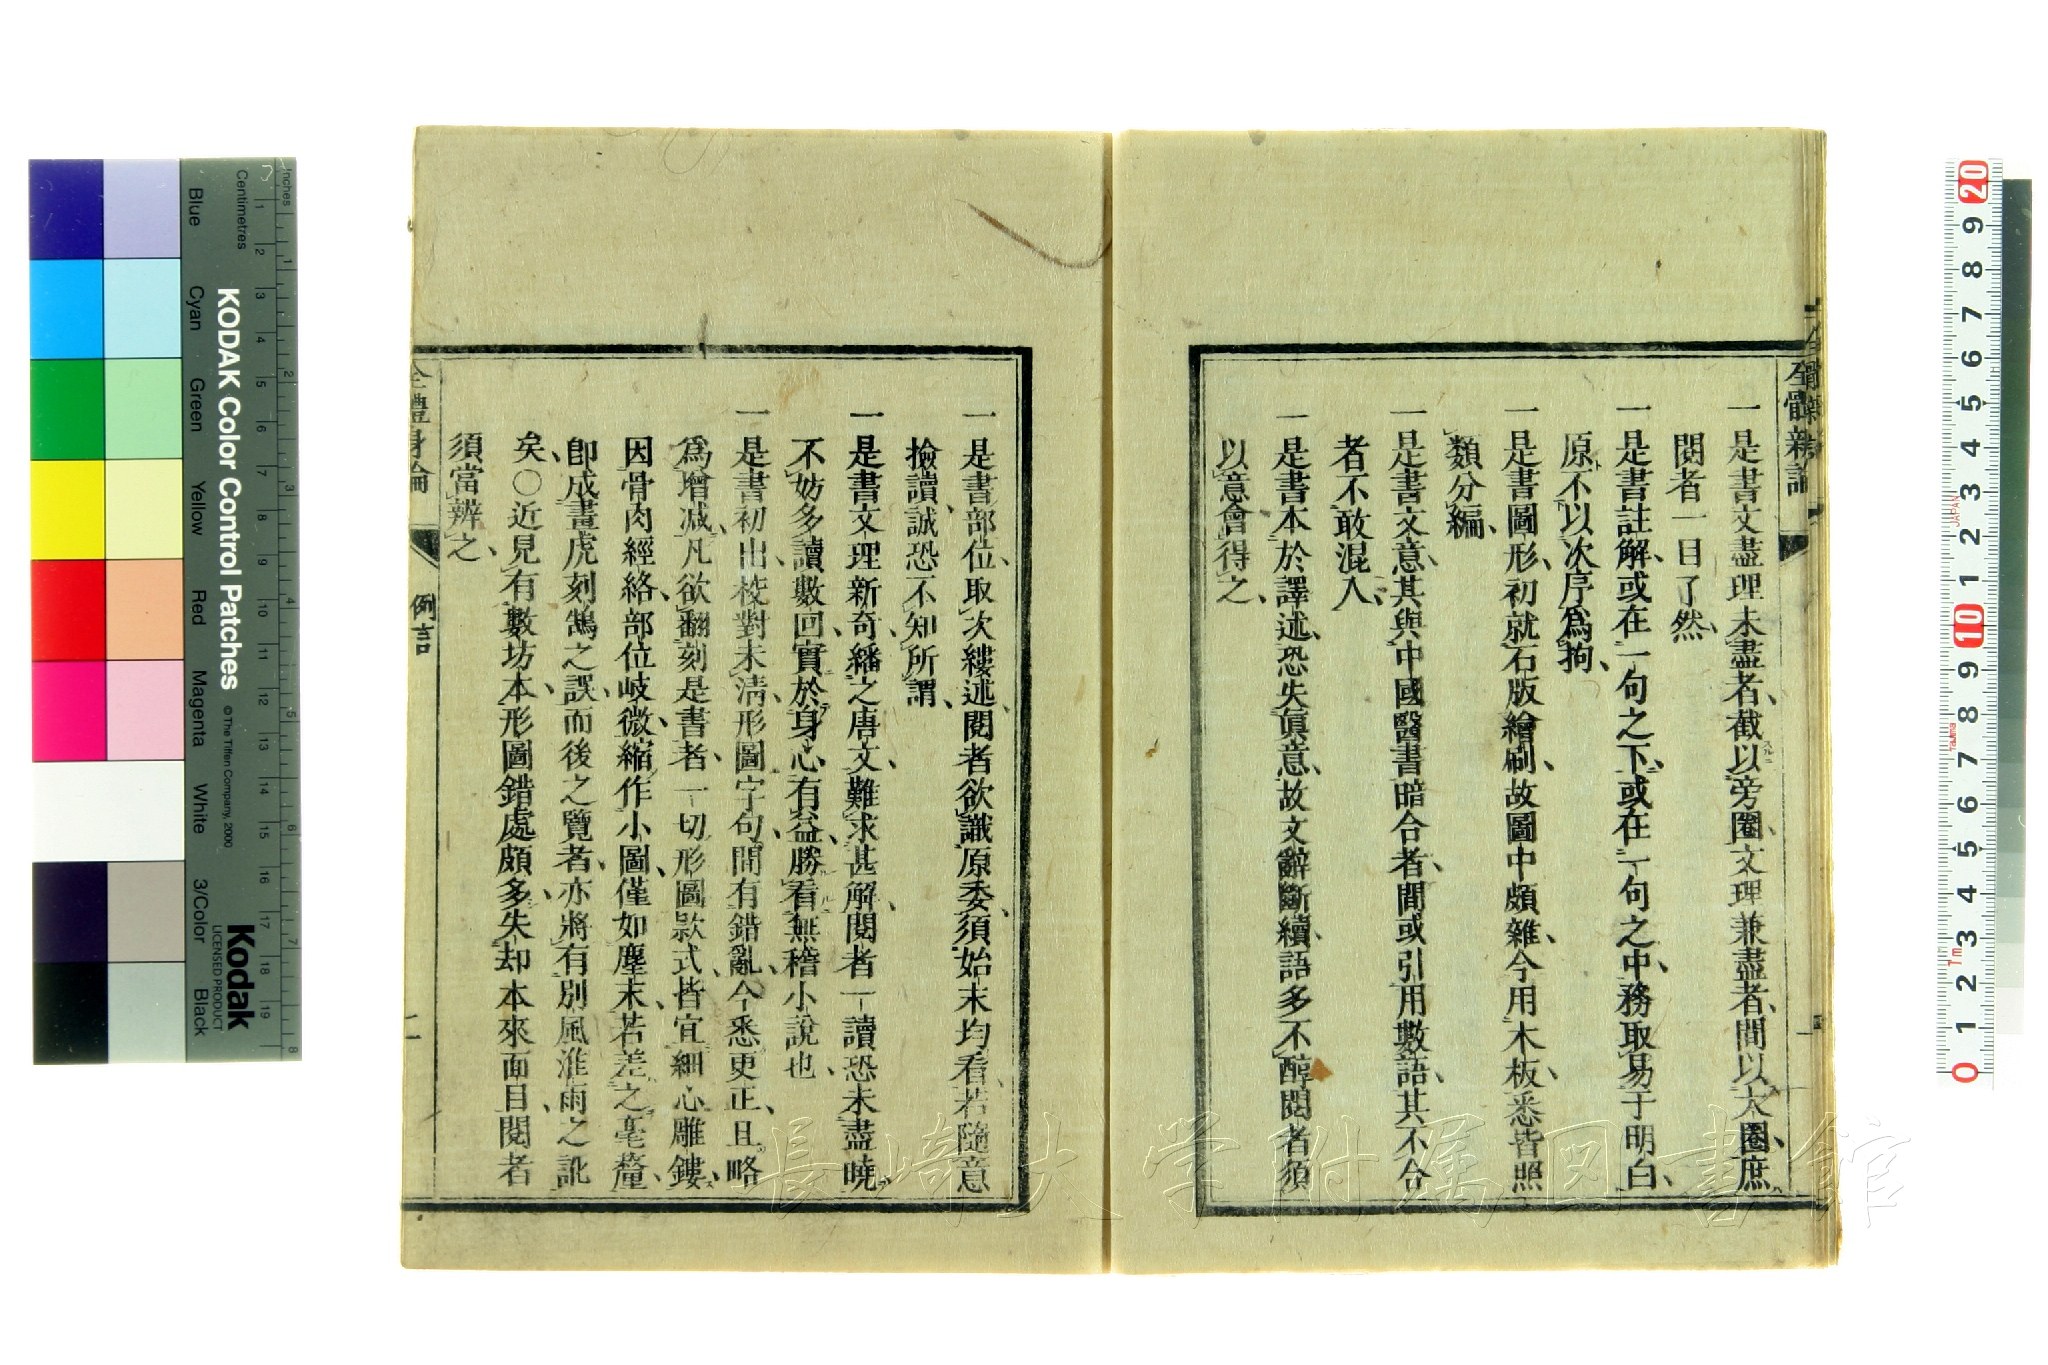 一是書文盡理未盡者、截以旁圈、文理兼盡者、間以大圈、庶
閱者一目了然、
一是書註解、或在一句之下、或在一句之中、務取易于明白、
原不以次序爲拘、
一是書圖形、初就石版繪刷、故圖中頗雜、今用木板、悉皆照
類分編、
一是書文意、其與中國醫書暗合者、間或引用數語、其不合
者不敢混入、
一是書本於譯述、恐失眞意、故文辭斷續、語多不醇、閱者須
以意會得之、
一是書部位、取次縷述、閱者欲識原委、須始末均看、若隨意
撿讀、誠恐不知所謂、
一是書文理新奇、繙之唐文、難求甚解、閱者一讀恐未盡曉、
不妨多讀數回、實於身心有益、勝看無稽小說也、
一是書初出、校對未清、形圖字句、間有錯亂、今悉更正、且略
爲增減、凡欲翻刻是書者、一切形圖款式、皆宜細心雕鏤、
因骨肉經絡部位岐微、縮作小圖、僅如塵末、若差之毫釐、
卽成畫虎刻鵠之誤、而後之覽者、亦將有別風淮雨之訛
矣、〇近見有數坊本、形圖錯處頗多、失却本來面目、閱者
須當辨之、
例言
二
KODAK Color Control Patches
© The Tiffen Company, 2000
Kodak
LICENSED PRODUCT
Centimetres
Inches
Blue
Cyan
Green
Yellow
Red
Magenta
White
3/Color
Black
1 2 3 4 5 6 7 8 9 10 11 12 13 14 15 16 17 18 19
1 2 3 4 5 6 7 8
20 9 8 7 6 5 4 3 2 1 10 9 8 7 6 5 4 3 2 1 0
JAPAN
Tajima
7m
長崎大学附属図書館